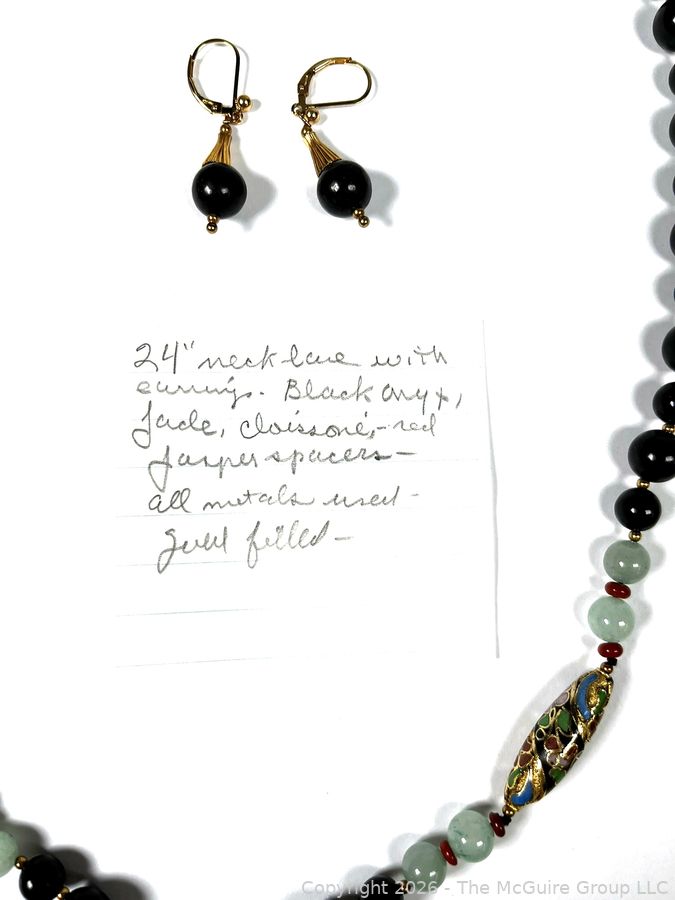 24" necklace with
earrings. Black Onyx,
Jade, cloissoné, - red
Jasper spacers -
all metals used -
gold filled -
Copyright 2026 - The McGuire Group LLC